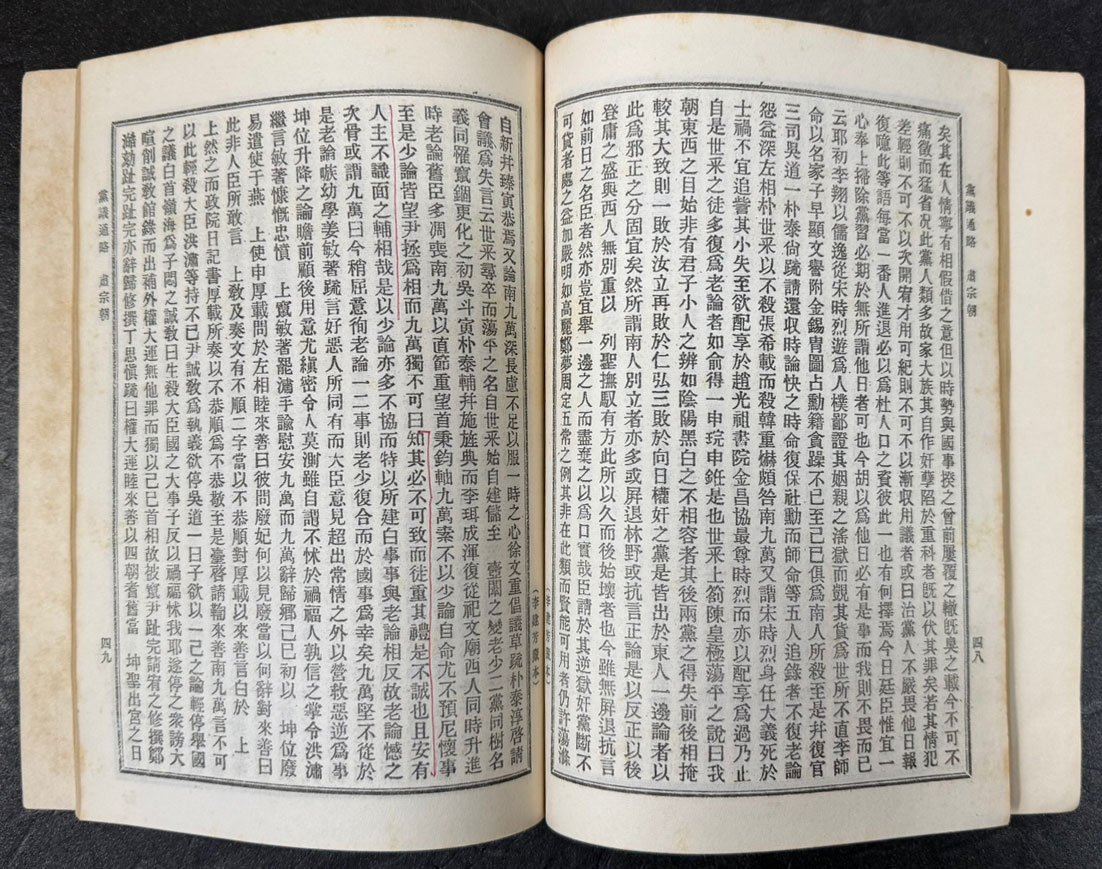 矣其在人情寧有相假借之意但以時勢與國事揆之曾前屢覆之轍旣臭之載今不可不
痛徵而猛省况此黨人類多故家大族其自作奸孽陷於重科者旣以伏其罪矣若其情犯
差輕則不可不以次開宥才用可紀則不可不以漸収用議者或曰治黨人不嚴畏他日報
復噫此等語每當一番人進退必以爲杜人口之資彼此一也有何擇焉今日廷臣惟宜一
心奉上掃除黨習必期於無所謂他日者可也今胡以爲他日必有是事而我則不畏而已
云耶初李翔以儒逸從宋時烈遊爲人樸鄙證其姻親之潘獄而覬其貨爲世所不直李師
命以名家子早顯文譽附金錫胄圖占勳籍貪躁不已至己巳俱爲南人所殺至是幷復官
三司吳道一朴泰尙疏請還収時論快之時命復保社勳而師命等五人追錄者不復老論
怨益深左相朴世采以不殺張希載而殺韓重爀頗咎南九萬又謂宋時烈身任大義死於
士禍不宜追訾其小失至欲配享於趙光祖書院金昌協最尊時烈而亦以配享爲過乃止
自是世采之徒多復爲老論者如俞得一申琓申銋是也世采上箚陳皇極蕩平之說曰我
朝東西之目始非有君子小人之辨如陰陽黑白之不相容者其後兩黨之得失前後相掩
較其大致則一敗於汝立再敗於仁弘三敗於向日權奸之黨是皆出於東人一邊論者以
此爲邪正之分固宜矣然所謂南人別立者亦多或屏退林野或抗言正論是以反正以後
登庸之盛與西人無別重以 列聖撫馭有方此所以久而後始壞者也今雖無屏退抗言
如前日之名臣者然亦豈宜舉一邊之人而盡棄之以爲口實哉臣請於其逆獄奸黨斷不
可貸者處之益加嚴明如高麗鄭夢周定五常之例其非在此類而賢能可用者仍許蕩滌
黨議通略 肅宗朝
四八
(李建芳藏本)
自新幷臻寅恭焉又論南九萬深長慮不足以服一時之心徐文重倡議草疏朴泰淳啓請
會議爲失言云世采尋卒而蕩平之名自世采始自建儲至 壼闈之變老少二黨同樹名
義同罹竄錮更化之初吳斗寅朴泰輔幷施旌典而李珥成渾復從祀文廟西人同時升進
時老論舊臣多凋喪南九萬以直節重望首秉鈞軸九萬素不以少論自命尤不預尼懷事
至是少論皆望尹拯爲相而九萬獨不可曰知其必不可致而徒重其禮是不誠也且安有
人主不識面之輔相哉是以少論亦多不協而特以所建白事事與老論相反故老論憾之
次骨或謂九萬曰今稍屈意徇老論一二事則老少復合而於國事爲幸矣九萬堅不從於
是老論嗾幼學姜敏著疏言好惡人所同有而大臣意見超出常情之外以營救惡逆爲事
坤位升降之論瞻前顧後用意尤縝密令人莫測雖自謂不怵於禍福人孰信之掌令洪潚
繼言敏著慷慨忠憤 上竄敏著罷潚手諭慰安九萬而九萬辭歸鄕己巳初以 坤位廢
易遣使于燕 上使申厚載問於左相睦來善曰彼問廢妃何以見廢當以何辭對來善曰
此非人臣所敢言 上敎及奏文有不順二字當以不恭順對厚載以來善言白於 上
上然之而政院日記書厚載所奏以不恭順爲不恭敬至是臺啓請鞫來善南九萬言不可
以此輕殺大臣洪潚等持不已尹誠敎爲執義欲停吳道一曰子欲以一己之論輕停舉國
之議白首嶺海爲子悶之誠敎曰生殺大臣國之大事子反以禍福怵我耶遂停之衆謗大
喧削誠敎館錄而出補外權大運無他罪而獨以己巳首相故被竄尹趾完請宥之修撰鄭
澔劾趾完趾完亦辭歸修撰丁思愼疏曰權大運睦來善以四朝耆舊當 坤聖出宮之日
黨議通略 肅宗朝
四九
(李建芳藏本)